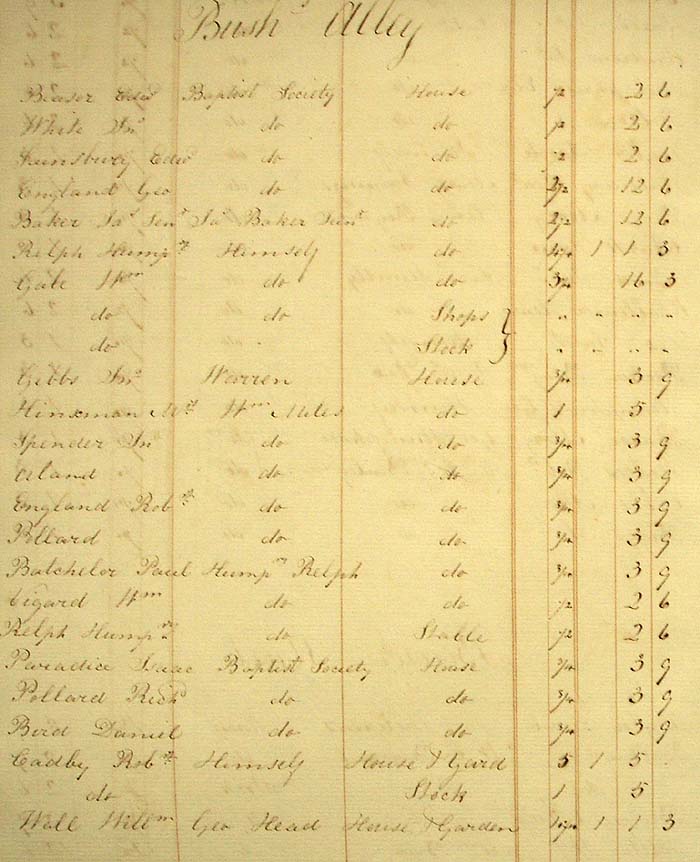 Bush's Alley
Beaser Edwd Baptist Society House ½ 2 6
White Jno do do ½ 2 6
Edwd do do ½ 2 6
England Geo do do 2½ 12 6
Baker Jas Senr Jas Baker Senr do 2½ 12 6
Relph Humpy Himself do 1 1 3
Gale Wm do do 16 3
do do Shops } " " " "
do Stock } " " " "
Gibbs Jno Warren House ¾ 3 9
Hinxman Mrs Wm Miles do 1 5
Spender Jno do do ¾ 3 9
do do ¾ 3 9
England Robt do do ¾ 3 9
Pollard do do ¾ 3 9
Batchelor Paul Humpy Relph do ¾ 3 9
Wm do do ½ 2 6
Relph Humpy do Stable ½ 2 6
Paradice Isaac Baptist Society House ¾ 3 9
Pollard Richd do do ¾ 3 9
Bird Daniel do do ¾ 3 9
Cadby Robt Himself House & Gard 5 1 5
do Stock 1 5
Wall Willm Geo Head House & Garden 1 1 3